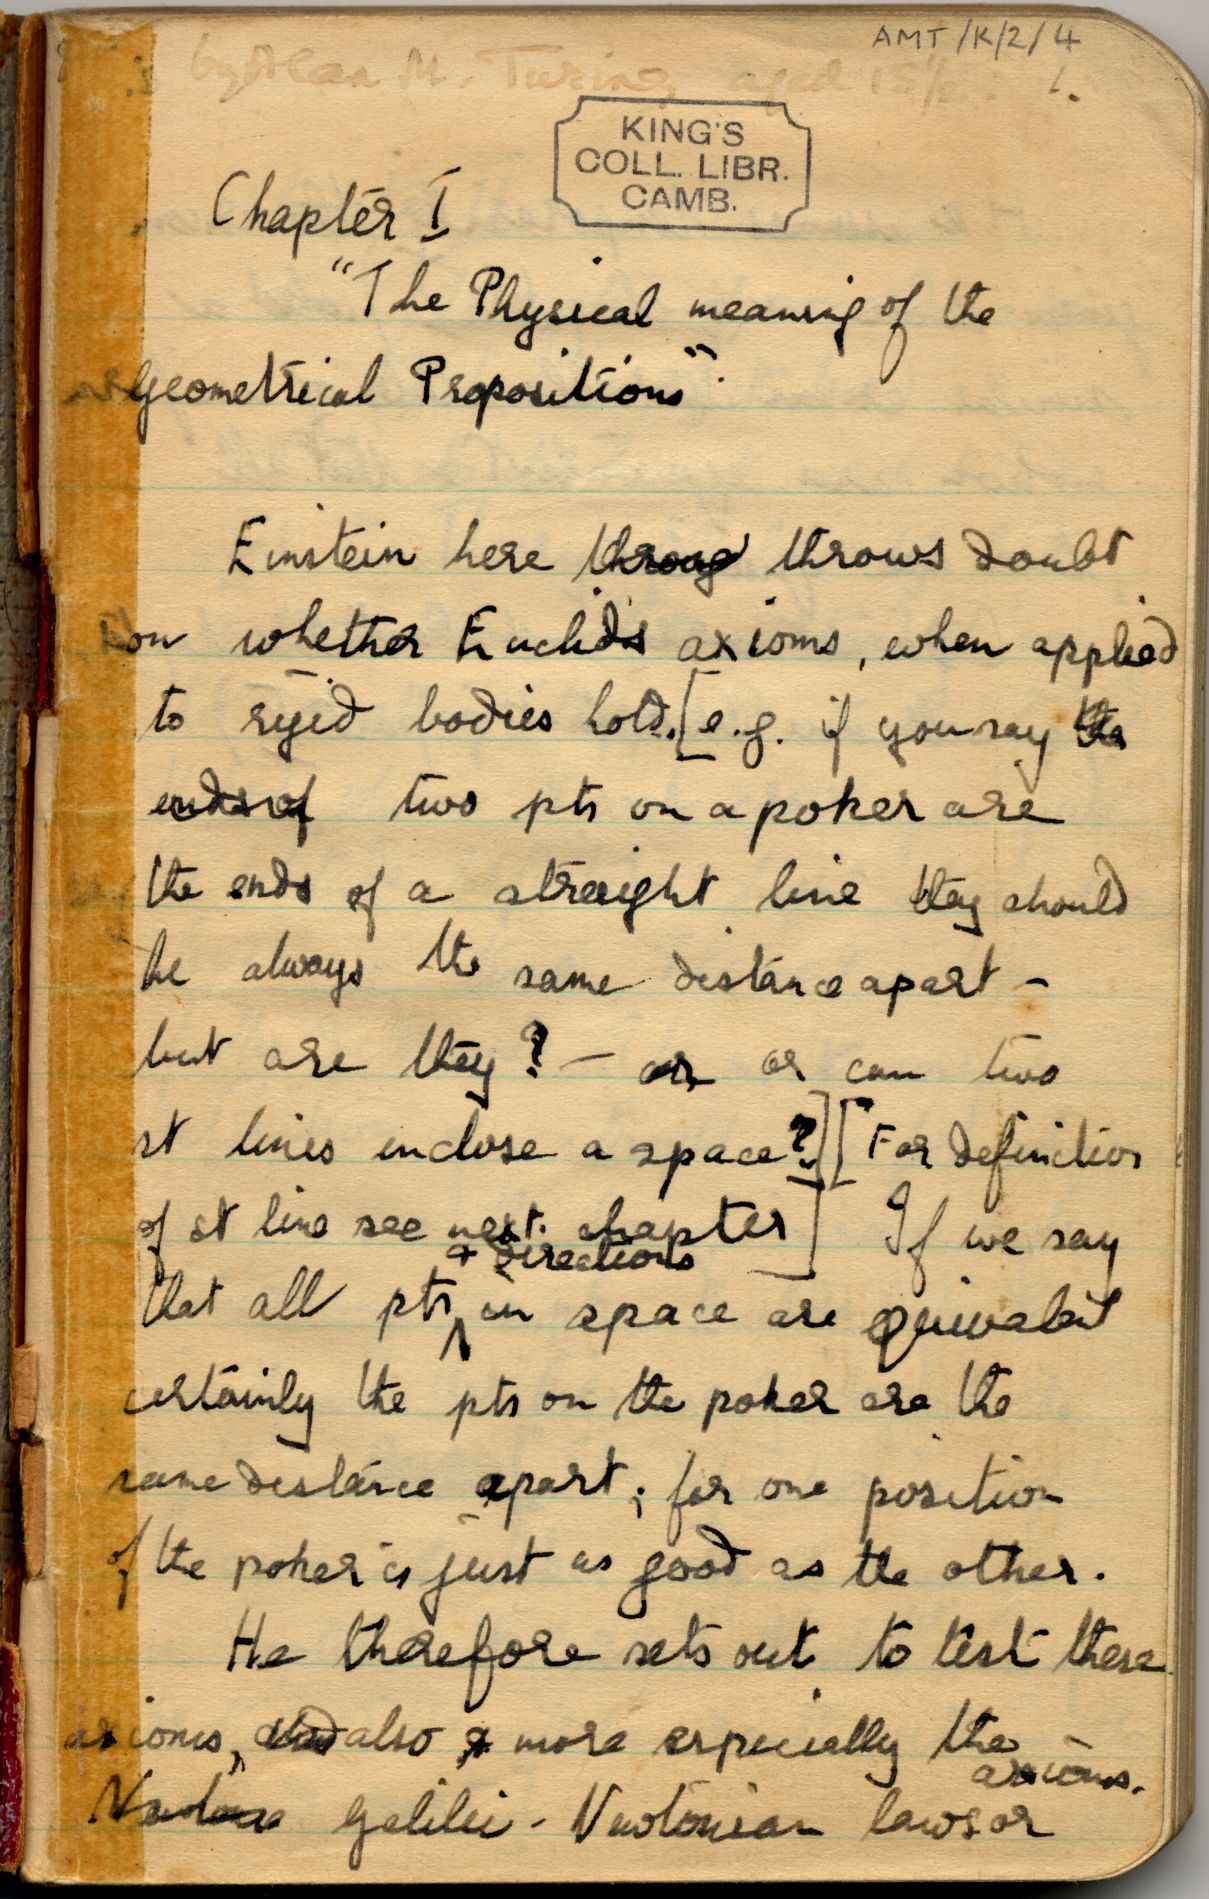 AMT/K/2/4
by Alan M. Turing, aged 15½. 1.
KING'S
COLL. LIBR.
CAMB.
Chapter I
"The Physical meaning of the
Geometrical Propositions".
Einstein here throug throws doubt
on whether Euclids axioms, when applied
to rigid bodies hold. [e.g. if you say the
ends of two pts on a poker are
the ends of a straight line they should
be always the same distance apart –
but are they? – or or can two
st lines enclose a space?] [For definition
of st line see next chapter] If we say
& directions
that all pts in space are equivalent
certainly the pts on the poker are the
same distance apart; for one position
of the poker is just as good as the other.
He therefore sets out to test these
axioms, and also & more especially the
axioms.
Galilei-Newtonian laws or